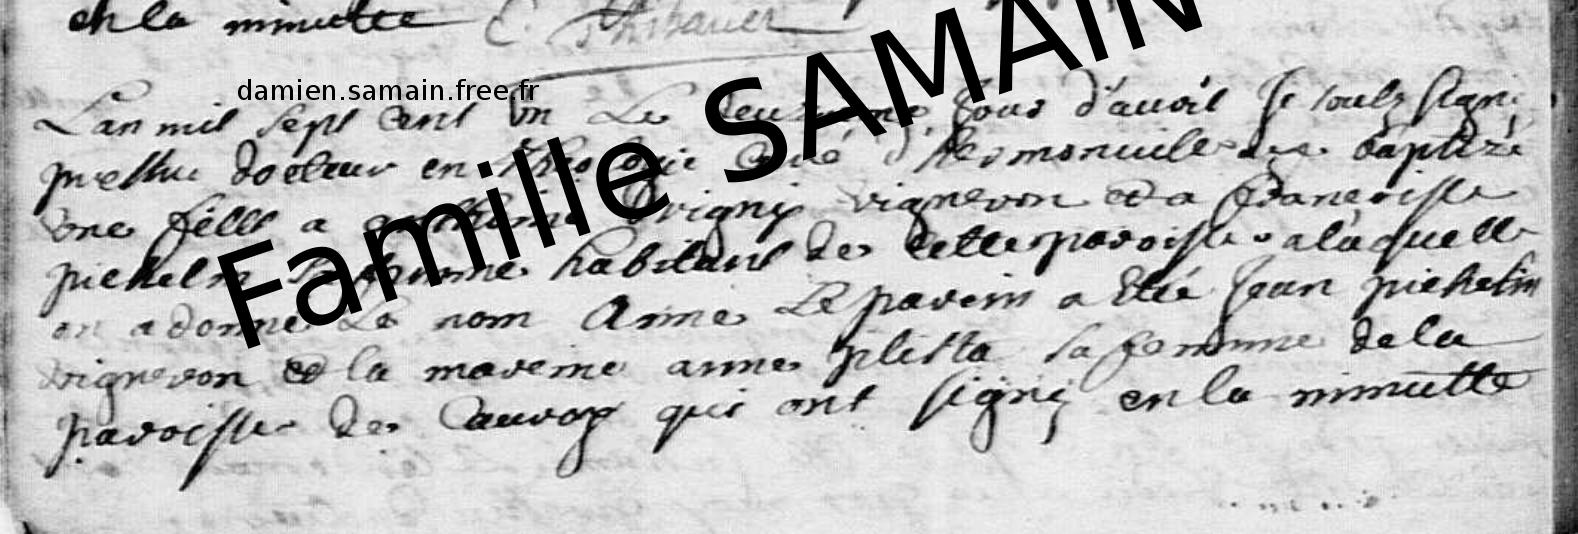 en la minutte C. Thibauet
damien.samain.free.fr
Famille SAMAIN
Lan mil sept cent un Le deuxieme Jour d'avril Je soubz signé
prestre docteur en Theologie Curé d'hermonville ay baptizé
une fille a vigneron et a francoisse
pichelin sa femme habitant de cette paroisse a laquelle
on a donné Le nom Anne Le parein a Eté Jean pichelin
vigneron et la mareine anne sa femme de la
paroisse de Cauroy qui ont signé en la minutte